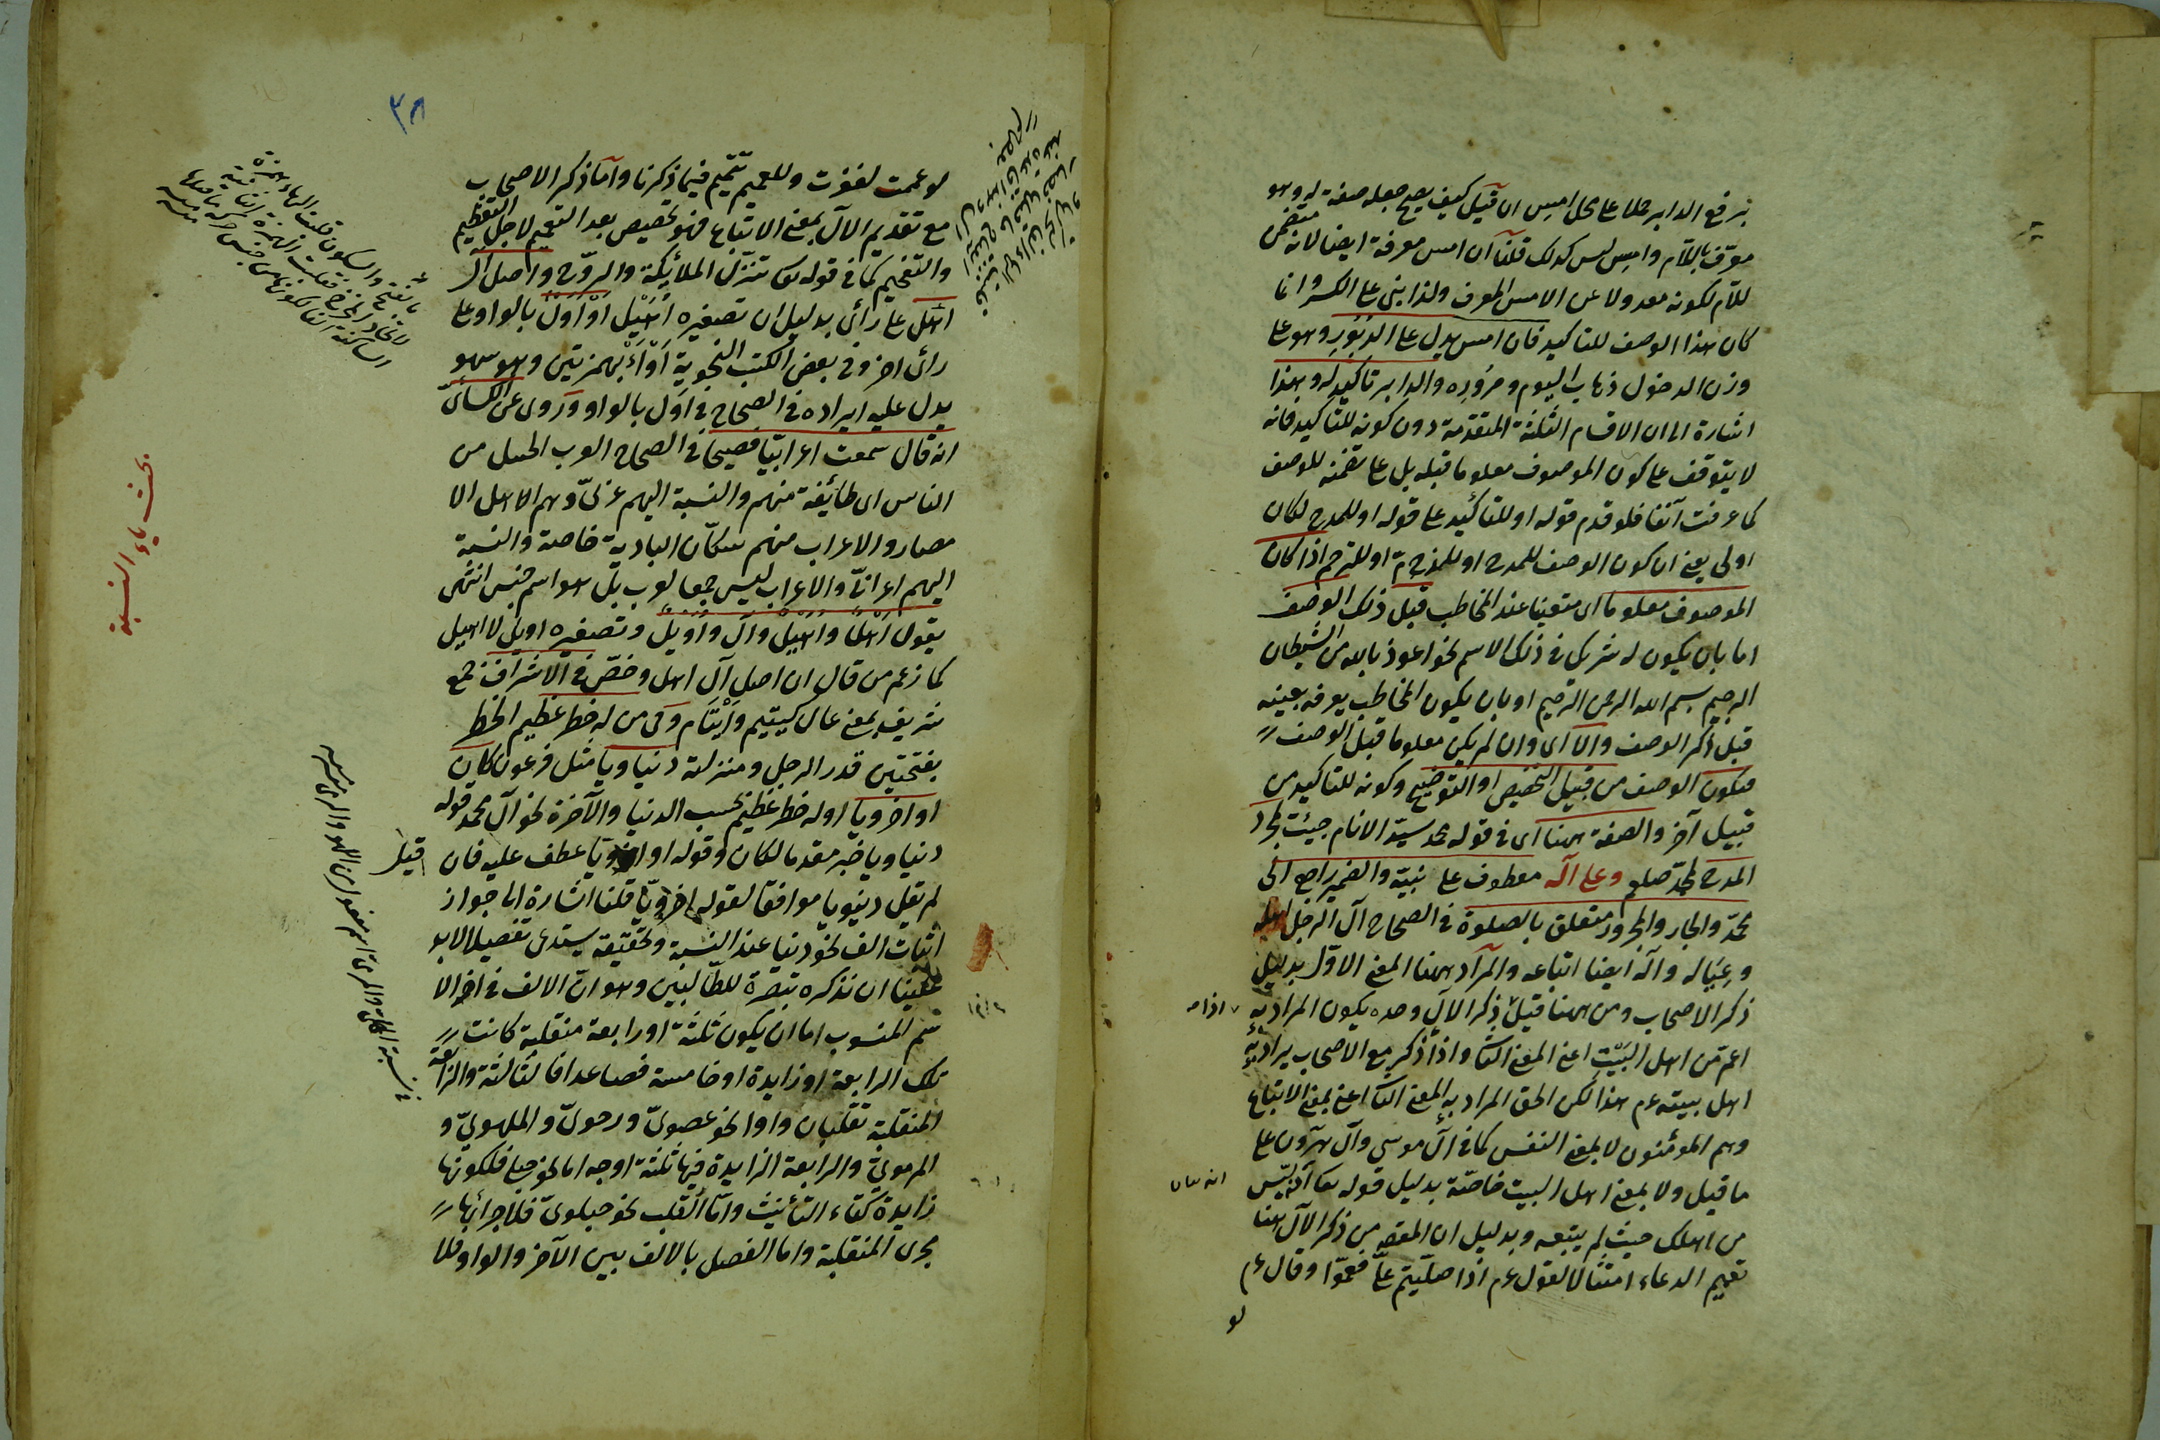 برفع الدابر حملا على محل امس ان قيل كيف يصح جعله صفة له وهو
معرّف باللام وامس ليس كذلك قلنا ان امس معرفة ايضا لانه متضمن
للام لكونه معدولا عن الامس المعرف ولذا بنى على الكسر وانما
كان هذا الوصف للتاكيد فان امس يدل على الدُبُورِ وهو على
وزن الدخول ذهاب اليوم ومروره والدابر تاكيد له وبهذا
اشارة الى ان الاقسام الثلثة المتقدمة دون كونه للتاكيد فانه
لا يتوقف على كون الموصوف معلوما قبله بل على تضمنه للوصف
كما عرفت آنفا فلو قدم قوله او للتاكيد على قوله او للمدح لكان
اولى يعنى ان كون الوصف للمدح او للذم او للترحم اذا كان
الموصوف معلوما اى متعينا عند المخاطب قبل ذلك الوصف
اما بان يكون له شريك فى ذلك الاسم نحو اعوذ بالله من الشيطان
الرجيم بسم الله الرحمن الرحيم او بان يكون المخاطب يعرفه بعينه
قبل ذكر الوصف والّا اى وان لم يكن معلوما قبل الوصف
فيكون الوصف من قبيل التخصيص او التوضيح وكونه للتاكيد من
قبيل آخر والصفة ههنا اى فى قوله محمد سيد الانام جيئت لمجرد
المدح لمحمد صلعم وعلى آله معطوف على نبيه والضمير راجع الى
محمد والجار والمجرور متعلق بالصلوة فى الصحاح آل الرجل اهله
وعياله وآله ايضا اتباعه والمراد ههنا المعنى الاول بدليل
ذكر الاصحاب ومن ههنا قيل ذكر الآل وحده يكون المراد به
اعم من اهل البيت اعنى المعنى الثانى واذا ذكر مع الاصحاب يراد به
اهل بيته عم هذا لكن الحق المراد به المعنى الثانى اعنى بمعنى الاتباع
وهم المؤمنون لا بمعنى النفس كما فى آل موسى وآل هرون على
ما قيل ولا بمعنى اهل البيت خاصّة بدليل قوله تعا انه ليس
من اهلك حيث لم يتبعه وبدليل ان المقصود من ذكر الآل هنا
تعميم الدعاء امتثالا لقوله عم اذا صلّيتم علىّ فعمّوا وقال عم
لو
٣٨
لو عممت لفزت وللعميم تتميم فيما ذكرنا وامّا ذكر الاصحاب
مع تقديم الآل بمعنى الاتباع فهو تخصيص بعد التعميم لاجل التعظيم
والتفخيم كما فى قوله تعا تنزّل الملائكة والروح واصل آل
اهل على رأى بدليل ان تصغيره اُهَيْل او اَوَل بالواو على
رأى آخر وفى بعض الكتب النحوية اَوْاَءَ بهمزتين وهو سهو
يدل عليه ايراده فى الصحاح فى اَوَل بالواو وروى عن الكسائى
انه قال سمعت اعرابيّا فصيحا فى الصحاح العرب الجيل من
الناس اى طائفة منهم والنسبة اليهم عربىّ وهم الاهل الا
مصار والاعراب منهم سكّان البادية خاصة والنسبة
اليهم اعرابىّ والاعراب ليس جمعا لعرب بل هو اسم جنس انتهى
يقول اهل واهيل وآل واويل وتصغيره اويل لا اهيل
كما زعم من قال ان اصل آل اهل وخصّ فى الاشراف جمع
شريف بمعنى عال كيتيم وايتام وفى من له خطر عظيم الخطر
بفتحتين قدر الرجل ومنزلته دنياويا مثل فرعون كان
او اخرويا او له خطر عظيم بحسب الدنيا والآخرة نحو آل محمد قوله
دنياويا خبر مقدم لكان وقوله او اخرويّا عطف عليه فان قيل
لم لم يقل دنيويا موافقا لقوله اخرويّا قلنا اشارة الى جواز
اثبات الف نحو دنيا عند النسبة وتحقيقه يستدعى تفصيلا لابد
علينا ان نذكره تبصرة للطالبين وهو انّ الالف فى آخر الا
سم المنسوب اما ان يكون ثلثة او رابعة منقلبة كانت
تلك الرابعة او زايدة او خامسة فصاعدا فالثالثة والرابعة
المنقلبة تقلبان واوا نحو عصوىّ ورحوىّ والملهوىّ و
المرموىّ والرابعة الزايدة فيها ثلثة اوجه اما نحو حبلى فلكونها
زايدة كتاء التأنيث وامّا القلب نحو حبلوىّ فلاجرائها
مجرى المنقلبة واما الفصل بالالف بين الآخر والواو فلا
بحث ياء النسبة